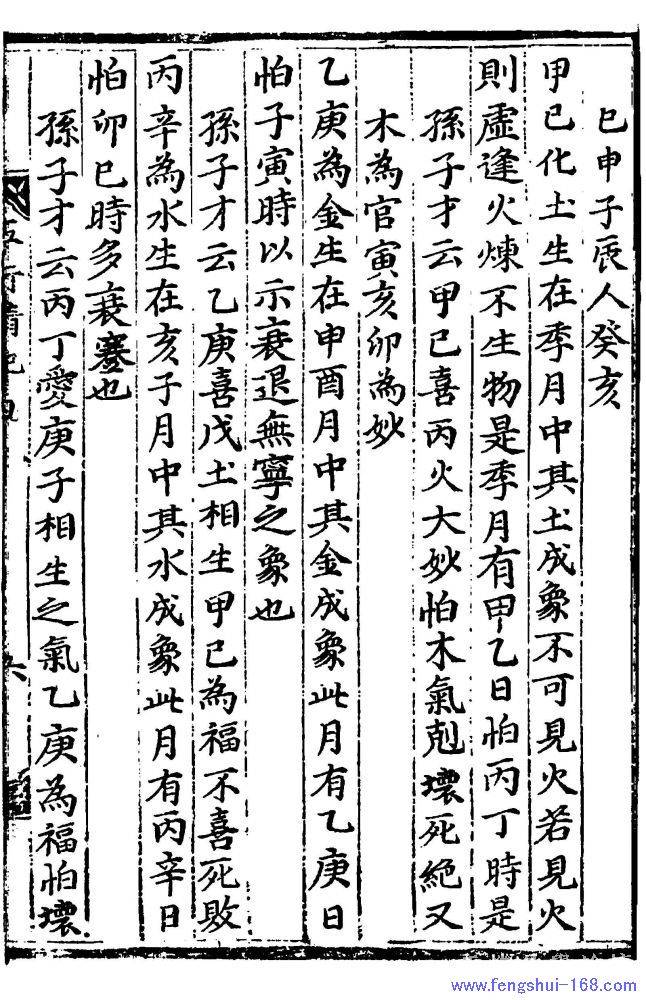 巳申子辰人癸亥
甲己化土生在季月中其土成象不可見火若見火
則虛逢火煉不生物是季月有甲乙日怕丙丁時是
孫子才云甲己喜丙火大妙怕木氣剋壞死絕又
木為官寅亥卯為妙
乙庚為金生在申酉月中其金成象此月有乙庚日
怕子寅時以示衰退無寧之象也
孫子才云乙庚喜戊土相生甲己為福不喜死敗
丙辛為水生在亥子月中其水成象此月有丙辛日
怕卯巳時多衰蹇也
孫子才云丙丁愛庚子相生之氣乙庚為福怕壞
五行精紀
六
www.fengshui-168.com